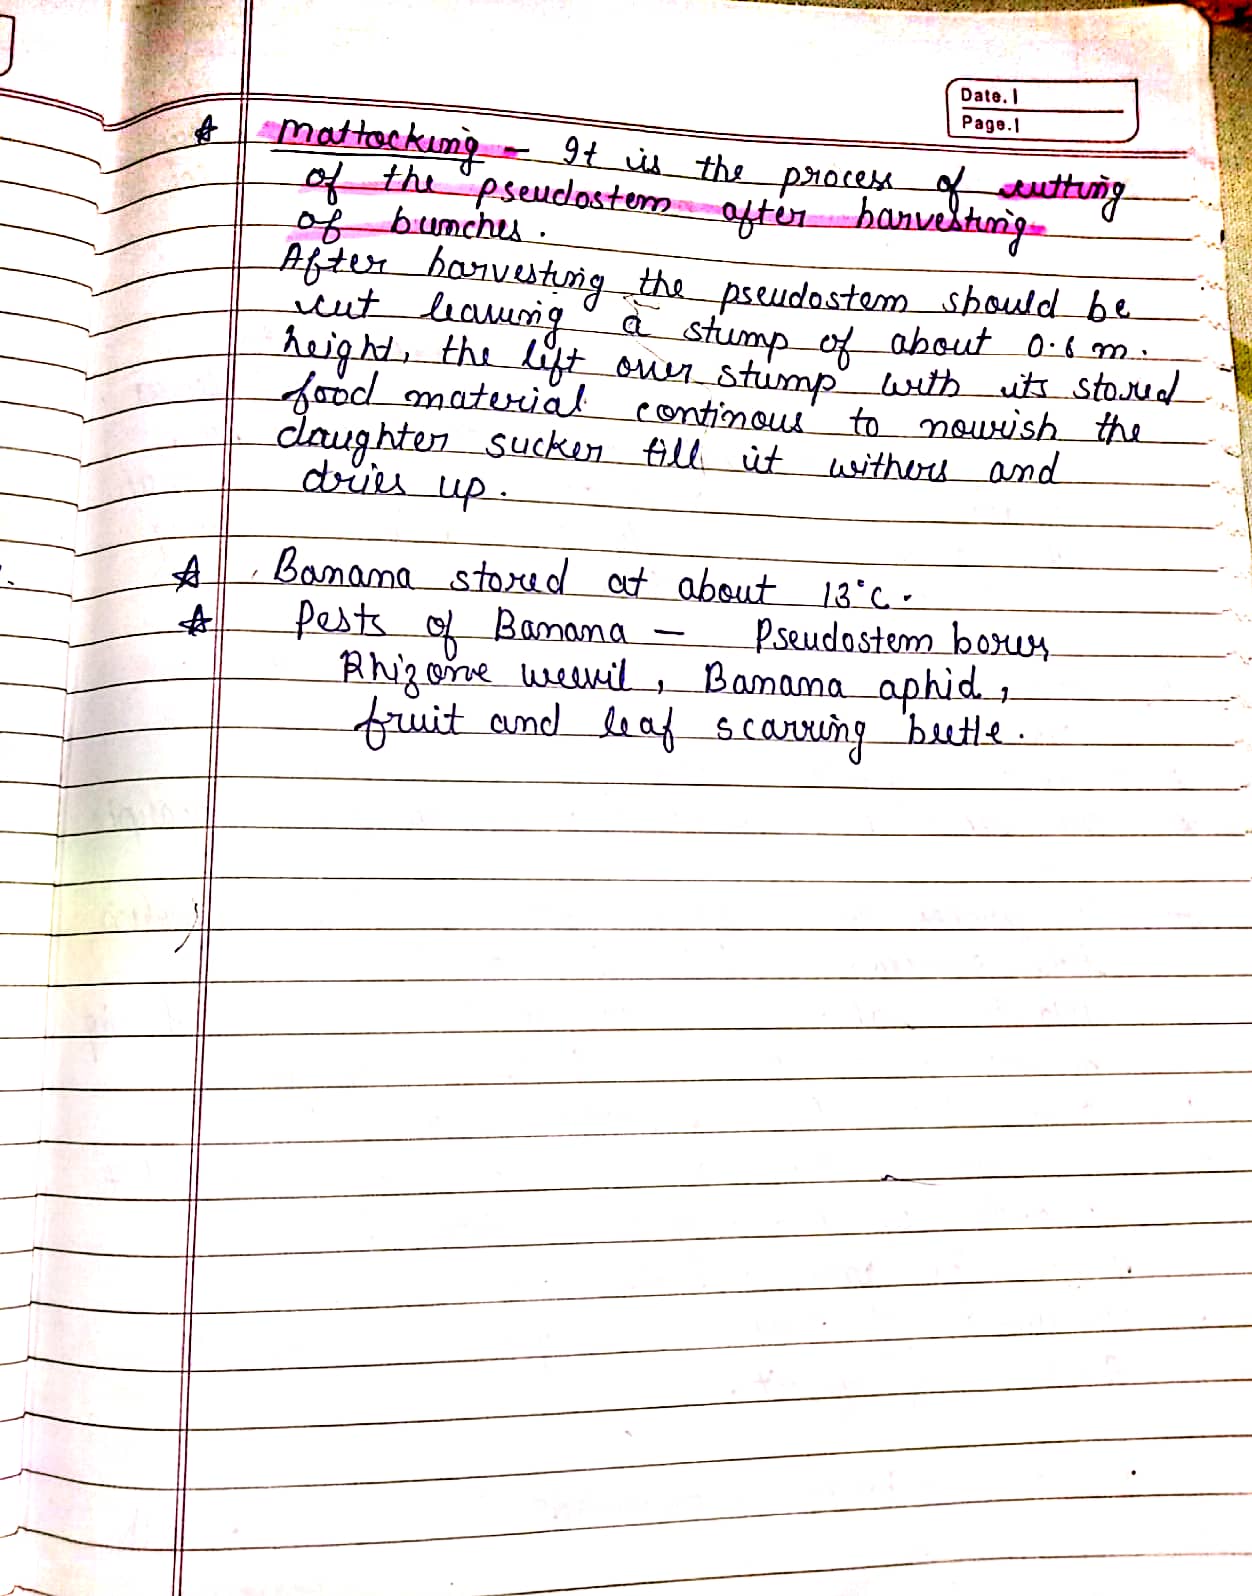 Date.
Page.
☆ Mattocking - It is the process of cutting
of the pseudostem after harvesting
of bunches.
After harvesting the pseudostem should be
cut leaving a stump of about 0.6 m.
height, the left over stump with its stored
food material continous to nourish the
daughter sucker till it withers and
dries up.
☆ Banana stored at about 13°C.
☆ Pests of Banana - Pseudostem borer,
Rhizome weevil, Banana aphid,
fruit and leaf scarring beetle.